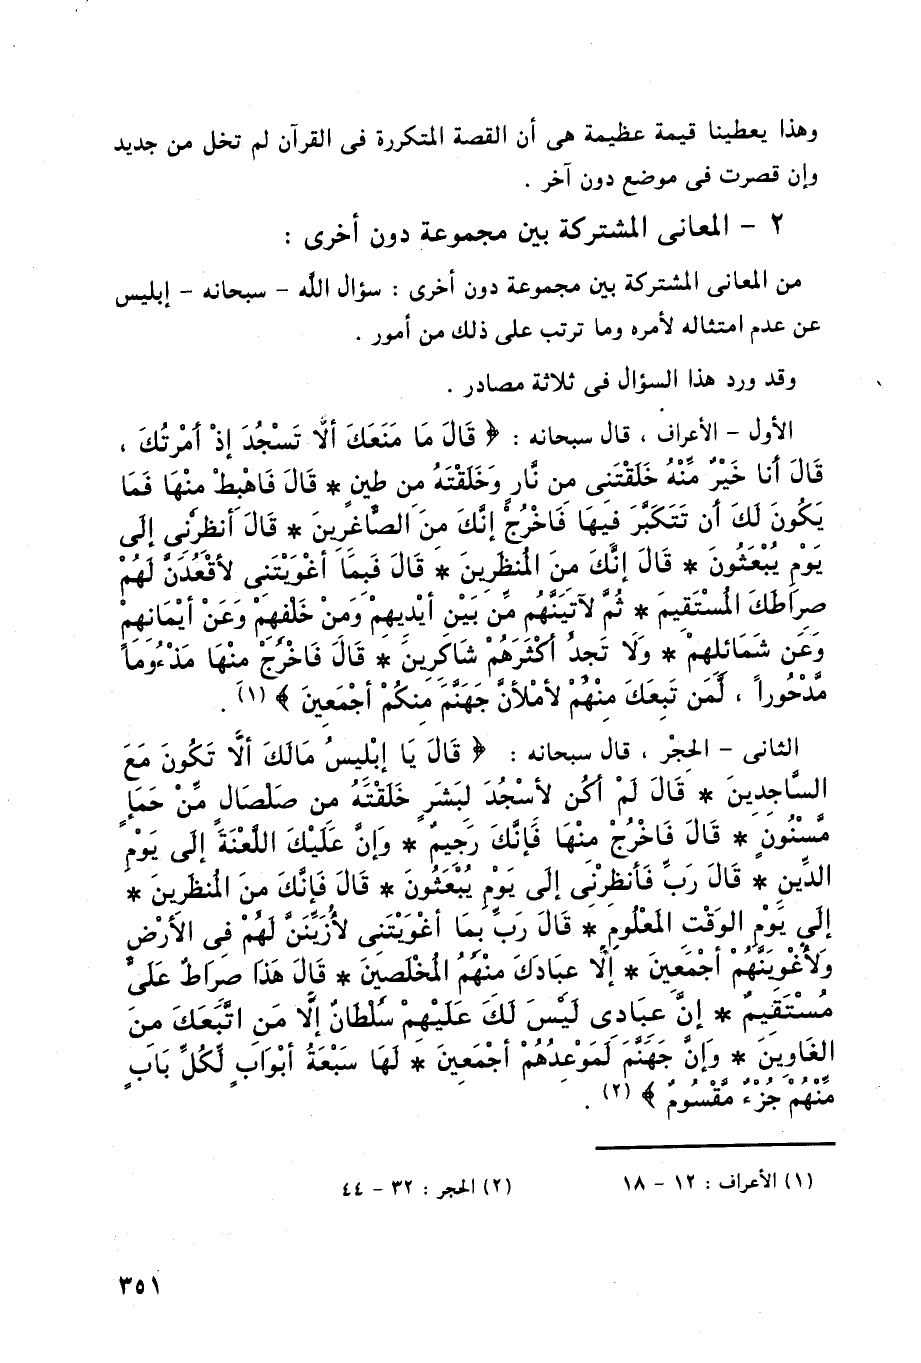 وهذا يعطينا قيمة عظيمة هى أن القصة المتكررة فى القرآن لم تخل من جديد
وإن قصرت فى موضع دون آخر .
٢ – المعانى المشتركة بين مجموعة دون أخرى :
من المعانى المشتركة بين مجموعة دون أخرى : سؤال اللَّه – سبحانه – إبليس
عن عدم امتثاله لأمره وما ترتب على ذلك من أمور .
وقد ورد هذا السؤال فى ثلاثة مصادر .
الأول – الأعراف ، قال سبحانه : ﴿ قَالَ مَا مَنَعَكَ ألَّا تَسْجُدَ إذْ أمَرْتُكَ ،
قَالَ أنَا خَيْرٌ مِّنْهُ خَلَقْتَنِى مِن نَّارٍ وَخَلَقْتَهُ مِن طِينٍ * قَالَ فَاهْبِطْ مِنْهَا فَمَا
يَكُونَ لَكَ أن تَتَكَبَّرَ فِيهَا فَاخْرُجْ إنَّكَ مِنَ الصَّاغِرِينَ * قَالَ أنظِرْنِى إلَى
يَوْمِ يُبْعَثُونَ * قَالَ إنَّكَ مِنَ الْمُنظَرِينَ * قَالَ فَبِمَا أغْوَيْتَنِى لأقْعُدَنَّ لَهُمْ
صِرَاطَكَ الْمُسْتَقِيمَ * ثُمَّ لآتِيَنَّهُم مِّن بَيْنِ أيْدِيهِمْ وَمِنْ خَلْفِهِمْ وَعَنْ أيْمَانِهِمْ
وَعَن شَمَائِلِهِمْ * وَلَا تَجِدُ أكْثَرَهُمْ شَاكِرِينَ * قَالَ فَاخْرُجْ مِنْهَا مَذْءُوماً
مَّدْحُوراً ، لَّمَن تَبِعَكَ مِنْهُمْ لأمْلأنَّ جَهَنَّمَ مِنكُمْ أجْمَعِينَ ﴾ (١) .
الثانى – الحِجْر ، قال سبحانه : ﴿ قَالَ يَا إبْلِيسُ مَالَكَ ألَّا تَكُونَ مَعَ
السَّاجِدِينَ * قَالَ لَمْ أكُن لأسْجُدَ لِبَشَرٍ خَلَقْتَهُ مِن صَلْصَالٍ مِّنْ حَمَإٍ
مَّسْنُونٍ * قَالَ فَاخْرُجْ مِنْهَا فَإنَّكَ رَجِيمٌ * وَإنَّ عَلَيْكَ اللَّعْنَةَ إلَى يَوْمِ
الدِّينِ * قَالَ رَبِّ فَأنظِرْنِى إلَى يَوْمِ يُبْعَثُونَ * قَالَ فَإنَّكَ مِنَ الْمُنظَرِينَ *
إلَى يَوْمِ الوَقْتِ المَعْلُومِ * قَالَ رَبِّ بِمَا أغْوَيْتَنِى لأُزَيِّنَنَّ لَهُمْ فِى الأرْضِ
وَلأغْوِيَنَّهُمْ أجْمَعِينَ * إلَّا عِبَادَكَ مِنْهُمُ الْمُخْلَصِينَ * قَالَ هَذَا صِرَاطٌ عَلَىَّ
مُسْتَقِيمٌ * إنَّ عِبَادِى لَيْسَ لَكَ عَلَيْهِمْ سُلْطَانٌ إلَّا مَنِ اتَّبَعَكَ مِنَ
الغَاوِينَ * وَإنَّ جَهَنَّمَ لَمَوْعِدُهُمْ أجْمَعِينَ * لَهَا سَبْعَةُ أبْوَابٍ لِّكُلِّ بَابٍ
مِّنْهُمْ جُزْءٌ مَّقْسُومٌ ﴾ (٢) .
(١) الأعراف : ١٢ – ١٨
(٢) الحجر : ٣٢ – ٤٤
٣٥١